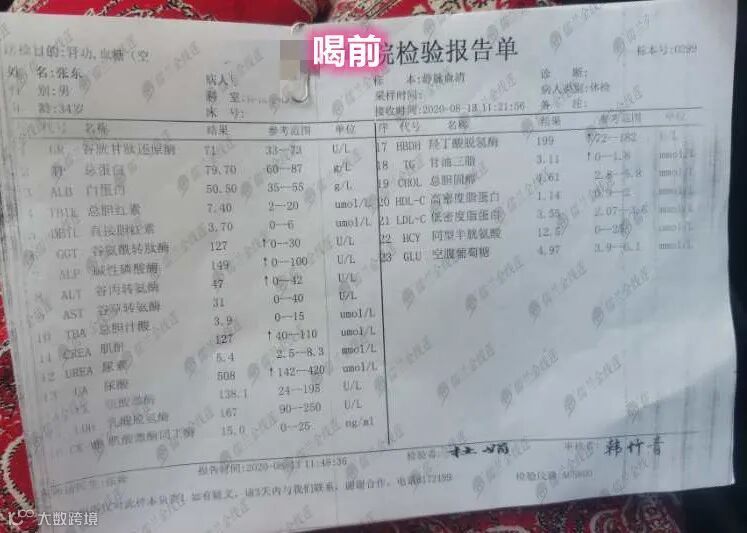 喝前
院检验报告单
送检目的:肝功,血糖(空
标本号:0299
姓 名:张东
病人
标 本:静脉血清
诊 断:
别:男
科 室:
采样时间:
病人类别:体检
龄:34岁
床 号:
接收时间:2020-08-13 11:21:56
备 注:
代号 名称 结果 参考范围 单位
序 代号 名称 结果 参考范围 单位
GR 谷胱甘肽还原酶 71 33--73 U/L
2 TP 总蛋白 79.70 60--87 g/L
3 ALB 白蛋白 50.50 35--55 g/L
4 TBIL 总胆红素 7.40 2--20 umol/L
DBIL 直接胆红素 3.70 0--6 umol/L
GGT 谷氨酰转肽酶 127 ↑0--30 U/L
ALP 碱性磷酸酶 149 ↑0--100 U/L
ALT 谷丙转氨酶 47 ↑0--42 U/L
AST 谷草转氨酶 31 0--40 U/L
10 TBA 总胆汁酸 3.9 0--15 umol/L
11 CREA 肌酐 127 ↑40--110 umol/L
12 UREA 尿素 5.4 2.5--8.3 mmol/L
13 UA 尿酸 508 ↑142--420 umol/L
138.1 24--195 U/L
LDH 乳酸脱氢酶 167 90--250 U/L
CK-MB 肌酸激酶同工酶 15.0 0--25 ng/ml
17 HBDH 羟丁酸脱氢酶 199 ↑72--182 U/L
18 TG 甘油三酯 3.11 ↑0--1.8 mmol/L
19 CHOL 总胆固醇 4.61 2.8--5.8 mmol/L
20 HDL-C 高密度脂蛋白 1.14 0.9--2 mmol/L
21 LDL-C 低密度脂蛋白 3.55 2.07--3.6 mmol/L
22 HCY 同型半胱氨酸 12.5 umol/L
23 GLU 空腹葡萄糖 4.97 3.9--6.1 mmol/L
报告时间:2020-08-13 11:48:36
检验者:杜娟
审核者:韩竹青
仅对此样本负责!如有疑义,请3天内与我们联系,谢谢合作。电话:8172199
儒兰金线莲
大数跨境